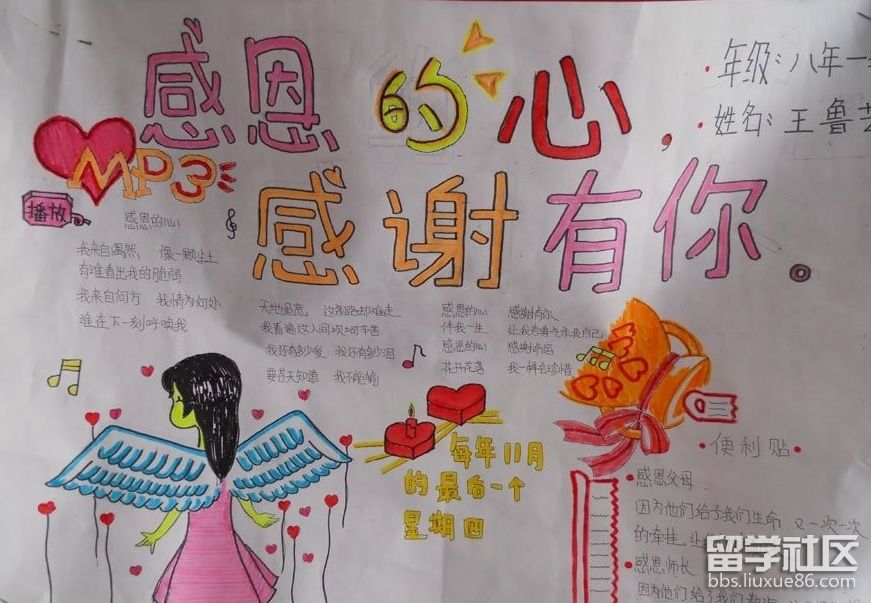 感恩的心，
感谢有你。
年级：八年一
姓名：王鲁艺
MP3
播放
感恩的心
我来自偶然，像一颗尘土
有谁看出我的脆弱
我来自何方 我情为何处
谁在下一刻呼唤我
天地虽宽，这条路却难走
我看遍这人间坎坷辛苦
我还有多少爱 我还有多少泪
要苍天知道 我不认输
感恩的心 感谢有你
伴我一生 让我有勇气作我自己
感恩的心 感谢命运
花开花落 我一样会珍惜
每年11月
的最后一个
星期四
·便利贴·
·感恩父母
因为他们给了我们生命，又一次一次
的牵挂，让
·感恩师长
因为他们给了我们教诲
留学社区
bbs.liuxue86.com